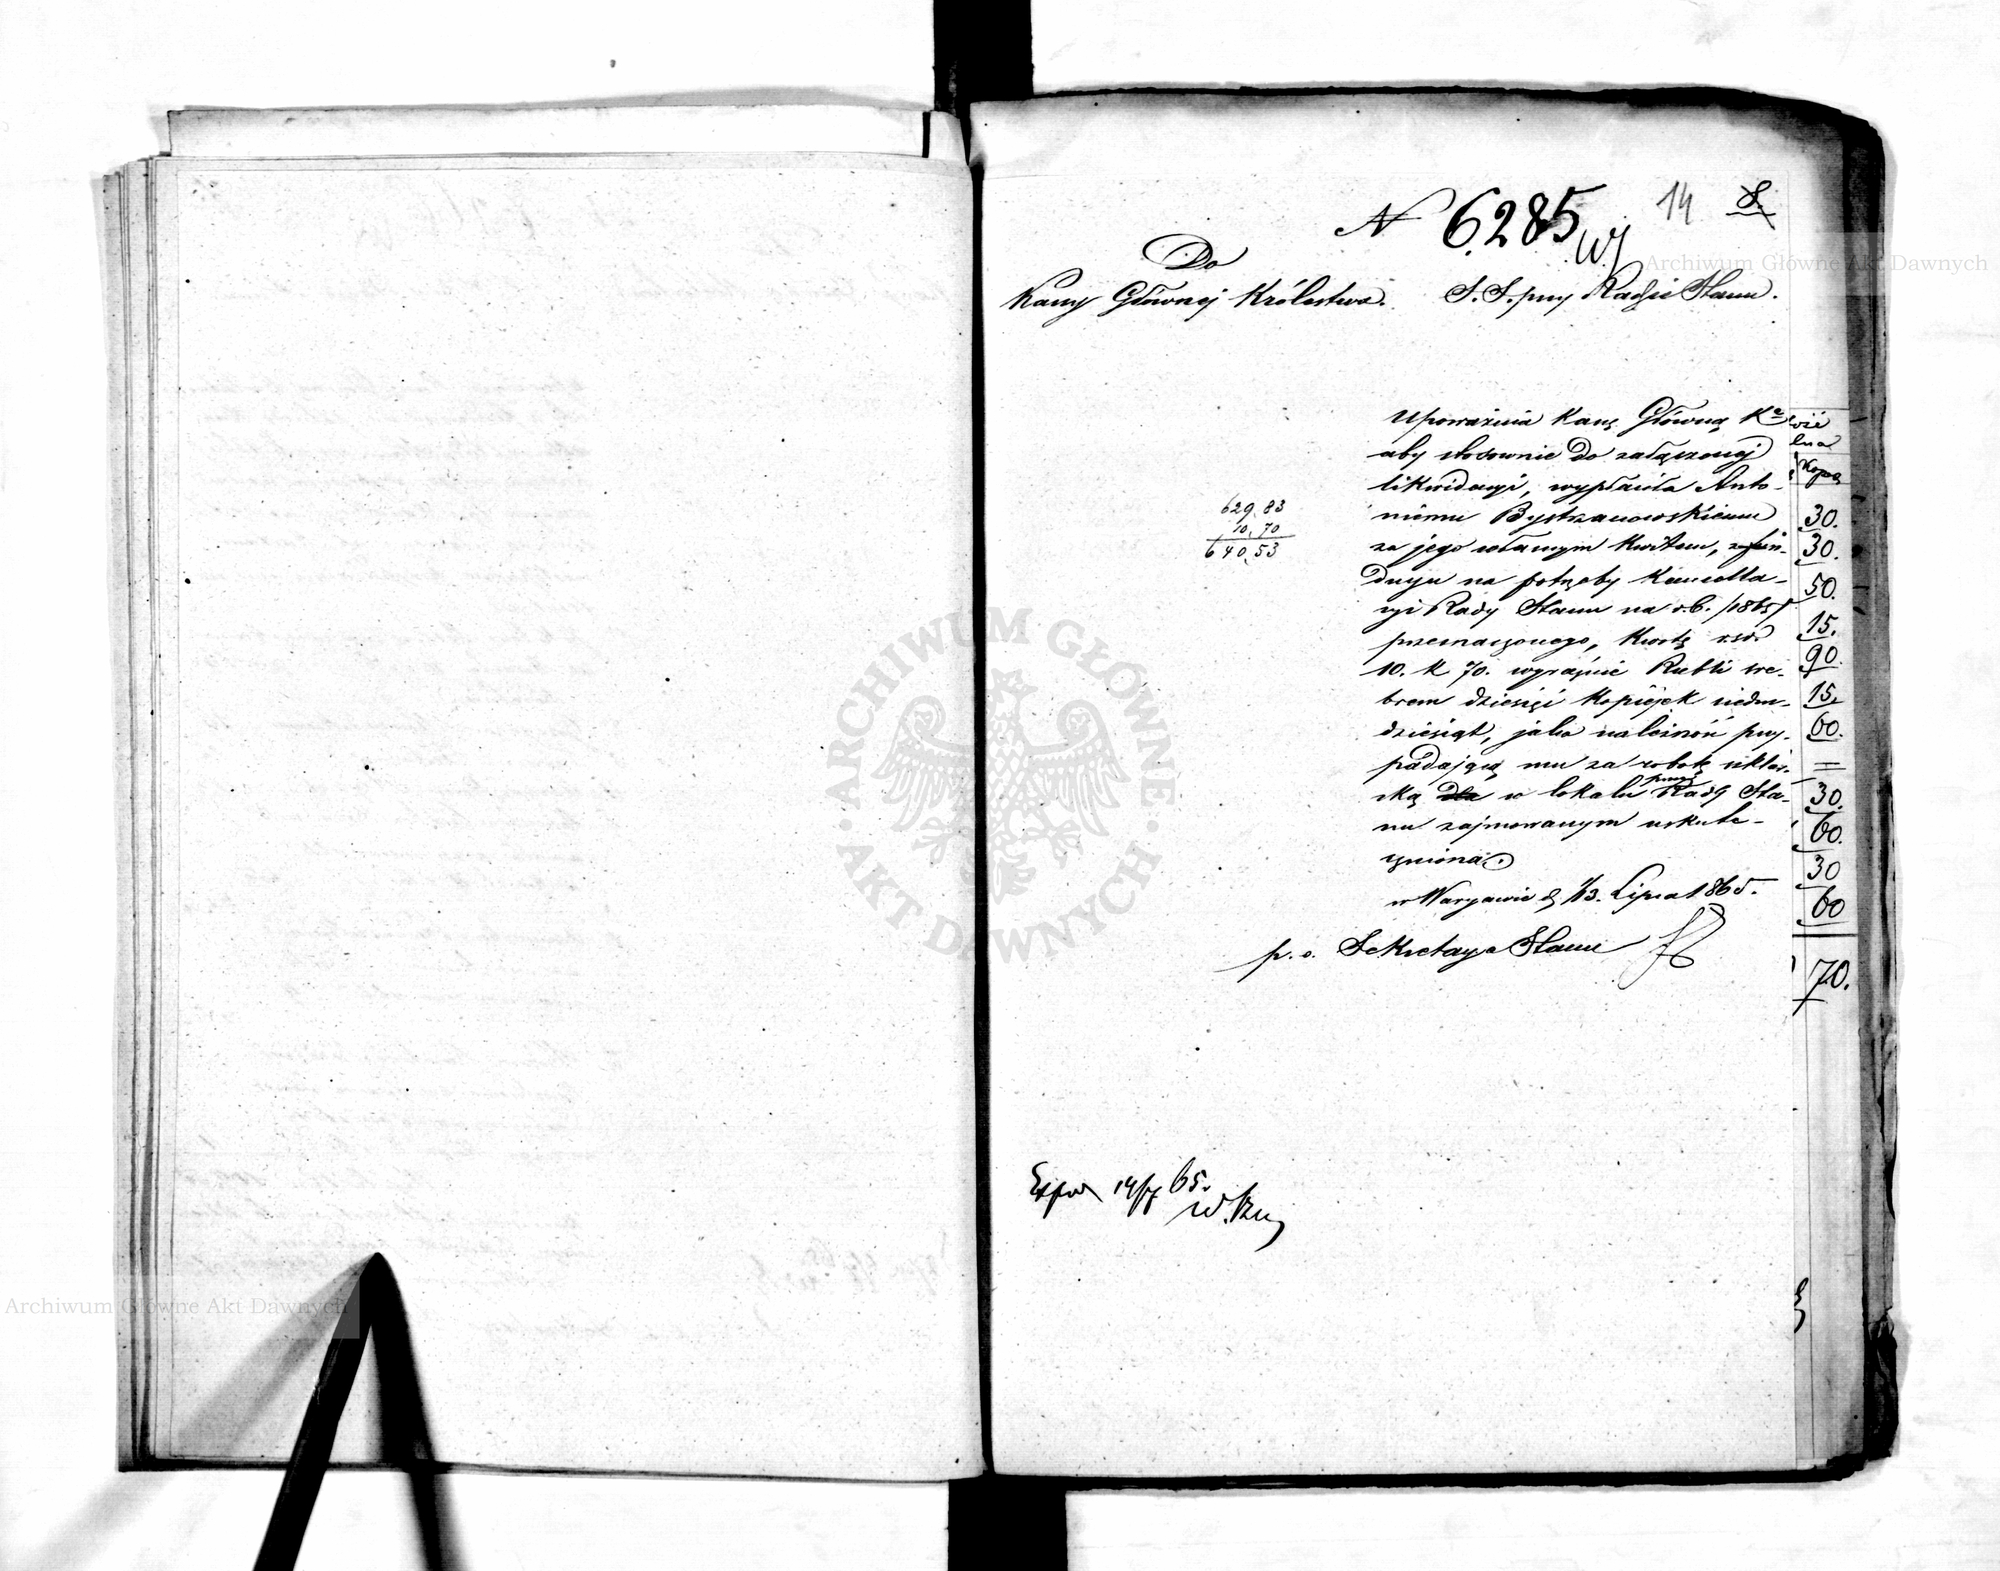 N 6285
14
8.
Do
Kassy Głównej Królestwa.
S. S. przy Radzie Stanu.
Upoważnia Kassę Główną Kr
aby stosownie do załączonej
likwidacyi, wypłaciła Anto-
niemu Bystrzanowskiemu
za jego własnym kwitem, z fun-
duszu na potrzeby Kancella-
ryi Rady Stanu na r. b. /1865/
przeznaczonego, kwotę rsr.
10. k 70. wyraźnie Rubli sre-
brem dziesięć kopiejek siedm-
dziesiąt, jako należność przy-
padającą mu za robotę szklar-
ską dla w lokalu przez Radę Sta-
nu zajmowanym uskute-
cznioną.
w Warszawie d. 1/13. Lipca 1865.
p. o. Sekretarza Stanu
629,83
10,70
640,53
Kopa
30.
30.
50.
15.
90.
15.
60.
=
30.
60.
30
60
70.
Exped 14/7 65.
Archiwum Główne Akt Dawnych
ARCHIWUM GŁÓWNE
AKT DAWNYCH
Archiwum Główne Akt Dawnych